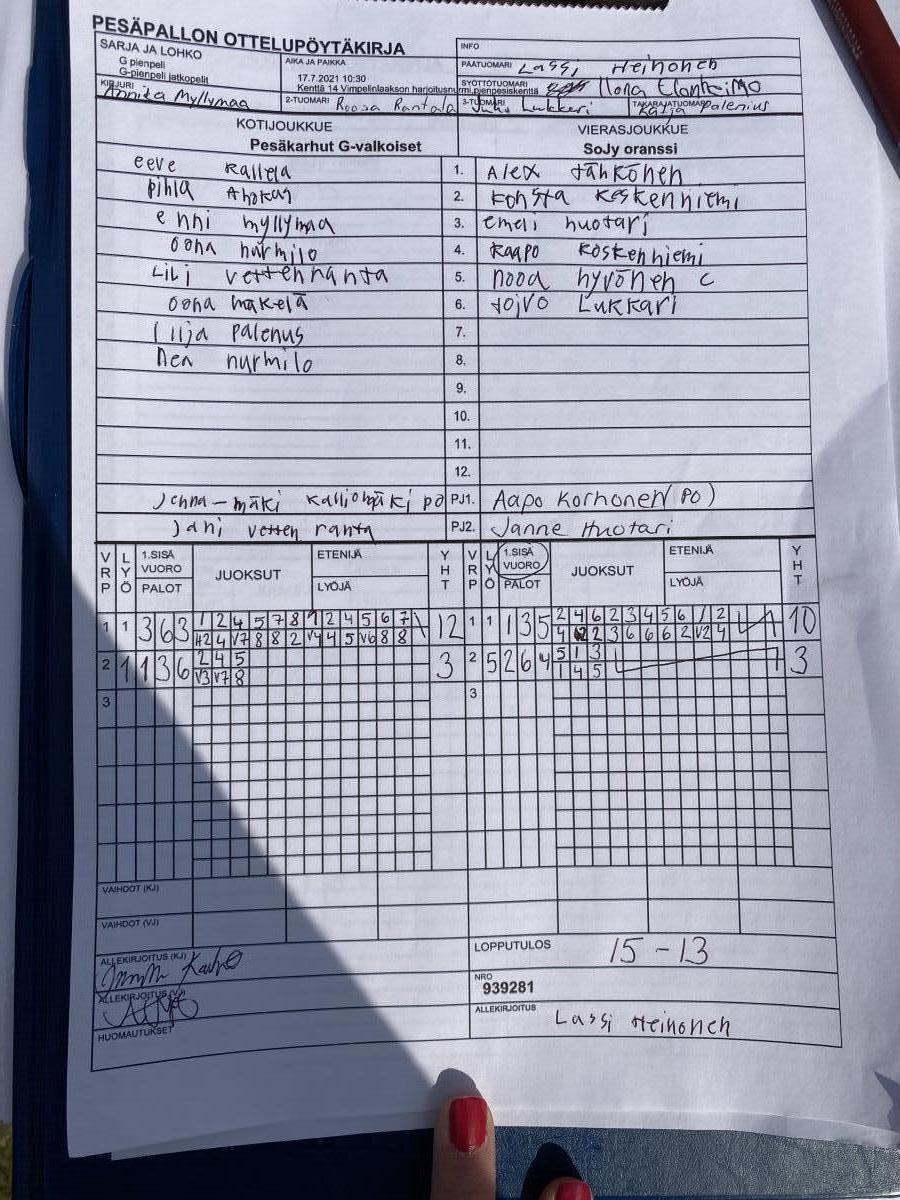 PESÄPALLON OTTELUPÖYTÄKIRJA
SARJA JA LOHKO
G pienpeli
G-pienpeli jatkopelit
AIKA JA PAIKKA
17.7.2021 10:30
Kenttä 14 Vimpelinlaakson harjoitusnurmi,pienpesiskenttä
INFO
PÄÄTUOMARI Lassi Heinonen
SYÖTTÖTUOMARI Ilona
KIRJURI Annika Myllymaa
2-TUOMARI Roosa Rantala
3-TUOMARI Lukkari
TAKARAJATUOMARI Katja Palenius
KOTIJOUKKUE
Pesäkarhut G-valkoiset
VIERASJOUKKUE
SoJy oranssi
eeve Kallela 1. Alex tähkönen
pihla Ahokas 2. Konsta Keskenniemi
enni myllymaa 3. emeli huotari
oona nurmilo 4. Kaapo Koskenniemi
Lili vettenranta 5. nooa hyvönen c
oona mäkelä 6. toivo Lukkari
lilja palenus 7.
nea nurmilo 8.
9.
10.
11.
12.
Jenna-mäki kalliomäki po PJ1. Aapo Korhonen (PO)
Jani vetten ranta PJ2. Janne Huotari
VRP LYÖ 1.SISÄ VUORO PALOT JUOKSUT ETENIJÄ LYÖJÄ YHT VRP LYÖ 1.SISÄ VUORO PALOT JUOKSUT ETENIJÄ LYÖJÄ YHT
1 1 3 6 3 1 2 4 5 7 8 1 2 4 5 6 7 12 1 1 1 3 5 2 4 6 2 3 4 5 6 1 2 10
H2 4 V7 8 8 2 V4 4 5 V6 8 8 4 2 3 6 6 6 2 V2 4
2 1 1 3 6 2 4 5 3 2 5 2 6 4 5 1 3 3
V3 V7 8 1 4 5
3 3
VAIHDOT (KJ)
VAIHDOT (VJ)
ALLEKIRJOITUS (KJ)
LOPPUTULOS 15-13
ALLEKIRJOITUS (VJ)
NRO
939281
HUOMAUTUKSET
ALLEKIRJOITUS Lassi Heinonen